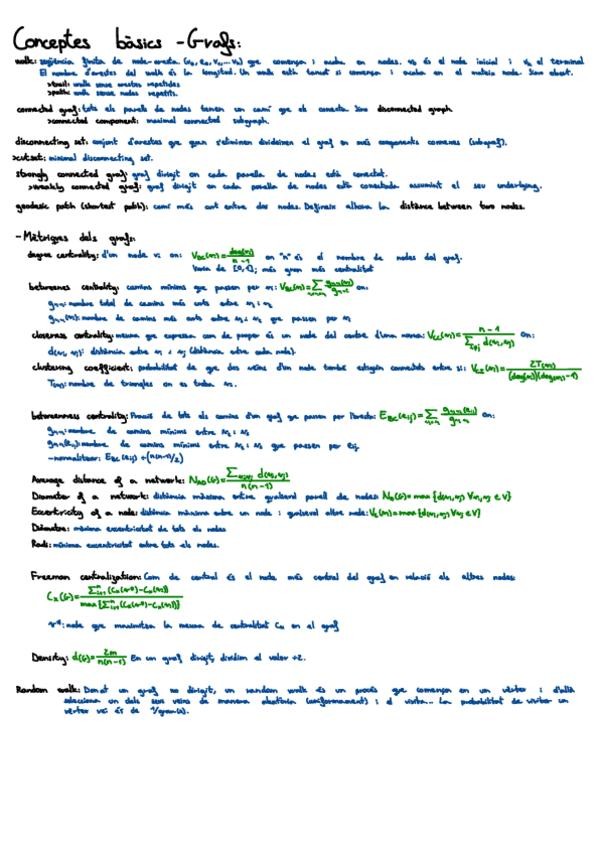 Conceptes bàsics - Grafs:
walk: seqüència finita de node-aresta (v0, e1, v1,... vk) que comença i acaba en nodes. v0 és el node inicial i vk el terminal
El nombre d'arestes del walk és la longitud. Un walk està tancat si comença i acaba en el mateix node. Sinó obert.
>trail: walk sense arestes repetides
>path: walk sense nodes repetits.
connected graf: tots els parells de nodes tenen un camí que els conecta. Sinó disconnected graph
>connected component: maximal connected subgraph.
disconnecting set: conjunt d'arestes que quan s'eliminen divideixen el graf en més components connexes (subgraf).
>cutset: minimal disconnecting set.
strongly connected graf: graf dirigit on cada parella de nodes està conectat.
>weakly connected graf: graf dirigit on cada parella de nodes està conectada assumint el seu underlying.
geodesic path (shortest path): camí més curt entre dos nodes. Defineix alhora la distance between two nodes.
- Mètriques dels grafs:
degree centrality: d'un node vi on: VDC(vi)=deg(vi)/n-1 on "n" és el nombre de nodes del graf.
Varia de [0,1]; més gran més centralitat
betweenness centrality: camins mínims que passen per vi: VBC(vi)=∑ on:
nombre total de camins més curts entre
nombre de camins més curts entre que passen per vi
closeness centrality: mesura que expressa com de proper és un node del centre d'una xarxa: VCC(vi)=n-1/∑i≠j d(vi,vj) on:
d(vi, vj): distància entre vi i vj (distància entre cada node).
clustering coefficient: probabilitat de que dos veïns d'un node també estiguin connectats entre si: 2T(vi)/(deg(vi))(deg(vi)-1)
T(vi): nombre de triangles on es troba vi.
betweenness centrality: Fracció de tots els camins d'un graf que passen per l'aresta: EBC(eij)=∑ on:
nombre de camins mínims entre
nombre de camins mínims entre que passen per eij
-normalitzar: EBC(eij) ÷(n(n-1)/2)
Average distance of a network: NAD(G)=∑ d(vi,vj)/n(n-1)
Diameter of a network: distància màxima entre qualsevol parell de nodes: ND(G)=max{d(vi,vj) ∀vi,vj∈V}
Eccentricity of a node: distància màxima entre un node i qualsevol altre node: VE(vi)=max{d(vi,vj) ∀vj∈V}
Diàmetre: màxima excentricitat de tots els nodes
Radi: mínima excentricitat entre tots els nodes.
Freeman centralization: Com de central és el node més central del graf en relació als altres nodes:
Cx(G)=∑i=1(Cx(v*)-Cx(vi))/max{∑i=1(Cx(v*)-Cx(vi))}
v*: node que maximitza la mesura de centralitat Cx en el graf
Density: d(G)=2m/n(n-1) En un graf dirigit, dividim el valor ÷2.
Random walk: Donat un graf no dirigit, un random walk és un procés que comença en un vèrtex i d'allà
selecciona un dels seus veïns de manera aleatòria (uniformament) i el visita... La probabilitat de visitar un
vèrtex veí és de 1/grau(v).